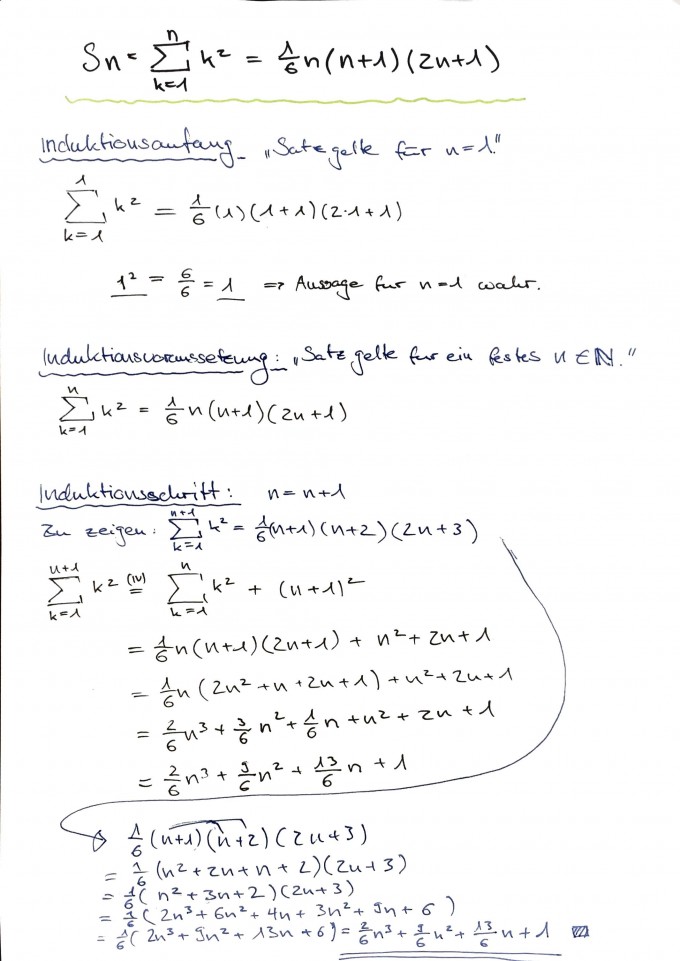 Sn = ∑_{k=1}^{n} k² = 1/6 n(n+1)(2n+1)
Induktionsanfang „Satz gelte für n=1."
∑_{k=1}^{1} k² = 1/6 (1)(1+1)(2·1+1)
1² = 6/6 = 1 => Aussage für n=1 wahr.
Induktionsvoraussetzung: „Satz gelte für ein festes n ∈ ℕ."
∑_{k=1}^{n} k² = 1/6 n(n+1)(2n+1)
Induktionsschritt: n = n+1
Zu zeigen: ∑_{k=1}^{n+1} k² = 1/6(n+1)(n+2)(2n+3)
∑_{k=1}^{n+1} k² (IV)= ∑_{k=1}^{n} k² + (n+1)²
= 1/6 n(n+1)(2n+1) + n² + 2n + 1
= 1/6 n (2n² + n + 2n + 1) + n² + 2n + 1
= 2/6 n³ + 3/6 n² + 1/6 n + n² + 2n + 1
= 2/6 n³ + 9/6 n² + 13/6 n + 1
1/6 (n+1)(n+2)(2n+3)
= 1/6 (n² + 2n + n + 2)(2n+3)
= 1/6 (n² + 3n + 2)(2n+3)
= 1/6 (2n³ + 6n² + 4n + 3n² + 9n + 6)
= 1/6 (2n³ + 9n² + 13n + 6) = 2/6 n³ + 9/6 n² + 13/6 n + 1